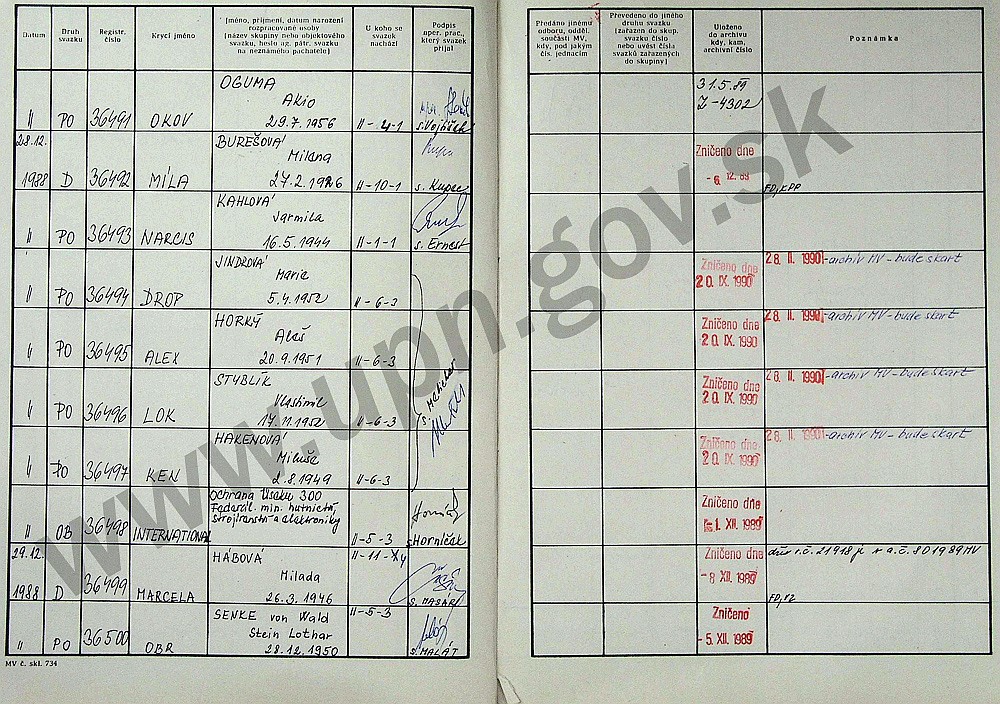 Datum
Druh svazku
Registr. číslo
Krycí jméno
Jméno, příjmení, datum narození
rozpracované osoby
(název skupiny nebo objektového
svazku, heslo ag. pátr. svazku
na neznámého pachatele)
U koho se
svazek
nachází
Podpis
oper. prac.,
který svazek
přijal
Předáno jinému
odboru, odděl.
součásti MV,
kdy, pod jakým
čís. jednacím
Převedeno do jiného
druhu svazku
(zařazen do skup.
svazku číslo
nebo uvést čísla
svazků zařazených
do skupiny)
Uloženo
do archivu
kdy, kam,
archivní číslo
Poznámka
OGUMA
Akio
" PO 36491 OKOV 29.7.1956 II-4-1 s.Vojtíšek
31.5.89
Z-4302
28.12. BUREŠOVÁ
Milena
1988 D 36492 MÍLA 27.2.1926 II-10-1 s. Kupec
Zničeno dne
-6. 12. 89
KAHLOVÁ
Jarmila
" PO 36493 NARCIS 16.5.1944 II-1-1 s. Ernest
JINDROVÁ
Marie
" PO 36494 DROP 5.4.1952 II-6-3
Zničeno dne
20. IX. 1990
28. II. 1990 -archiv MV-bude skart
HORKÝ
Aleš
" PO 36495 ALEX 20.9.1951 II-6-3
Zničeno dne
20. IX. 1990
28. II. 1990 -archiv MV-bude skart
STYBLÍK
Vlastimil
" PO 36496 LOK 17.11.1952 II-6-3
Zničeno dne
20. IX. 1990
28. II. 1990 -archiv MV-bude skart
HAKENOVÁ
Miluše
" PO 36497 KEN 2.8.1949 II-6-3
Zničeno dne
20. IX. 1990
28. II. 1990 -archiv MV-bude skart
Ochrana úseku 300
Federál. min. hutnictví,
strojírenství a elektroniky
" OB 36498 INTERNATIONAL II-5-3 s.Horníček
Zničeno dne
-1. XII. 1989
29.12. HÁBOVÁ
Milada
1988 D 36499 MARCELA 26.3.1946 II-11- s. MASAŘ
Zničeno dne
-8 XII. 1989
r.č. 21918 a.č. 801989MV
SENKE von Wald
Stein Lothar
" PO 36500 OBR 28.12.1950 II-5-3 s. MALÁT
Zničeno
-5. XII. 1989
MV č. skl. 734
www.upn.gov.sk